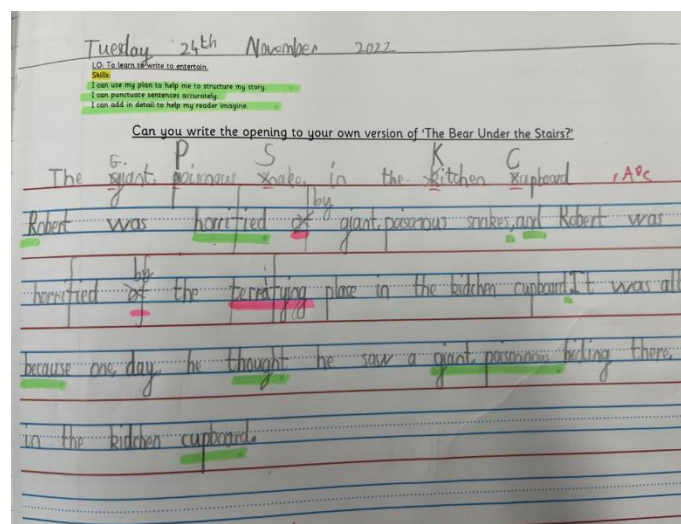 Tuesday 24th November 2022
LO- To learn to write to entertain.
Skills:
I can use my plan to help me to structure my story.
I can punctuate sentences accurately.
I can add in detail to help my reader imagine.
Can you write the opening to your own version of 'The Bear Under the Stairs?'
G. P S K C
The giant, poirnous snake, in the kitchen cupboard , ABC
by
Robert was horrified of giant, poisonous snakes, and Robert was
by
horrified of the terrafying place in the kidchen cupboard. It was all
because one, day, he thought he saw a giant, poisonous hiding there,
in the kidchen cupboard.